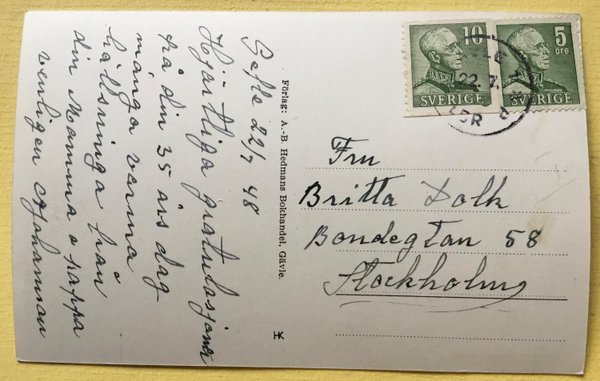 Gefle 22/7 48
Hjärtliga gratulasjoner
på din 35 års dag
många varma
hällsninga från
din Mamma o pappa
venligen Johannsan
Förlag: A.-B. Hedmans Bokhandel, Gävle.
10
SVERIGE
5
öre
SVERIGE
22.7.
Fru
Britta Dolk
Bondegtan 58
Stockholm